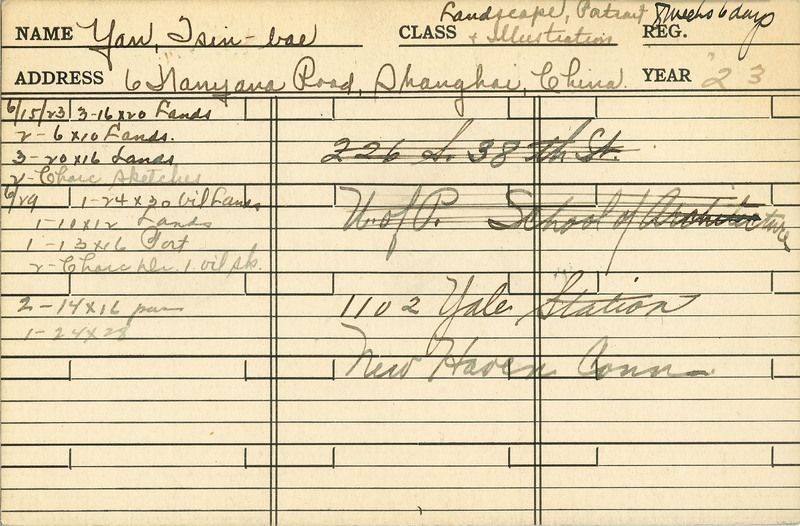 NAME Yan, Tsin-bae CLASS Landscape, Portrait + Illustration REG. 8 weeks 6 days
ADDRESS 6 Nanyang Road, Shanghai, China. YEAR '23
6/15/23 3-16x20 Lands
2-6x10 Lands.
3-20x16 Lands
2-Charc Sketches
6/29 1-24x30 Oil Lands
1-10x12 Lands
1-13x16 Port
2-Charc Dr. 1 oil sk.
2-14x16
1-24x28
226 S. 38th St.
U. of P. School of Architecture
1102 Yale Station
New Haven Conn